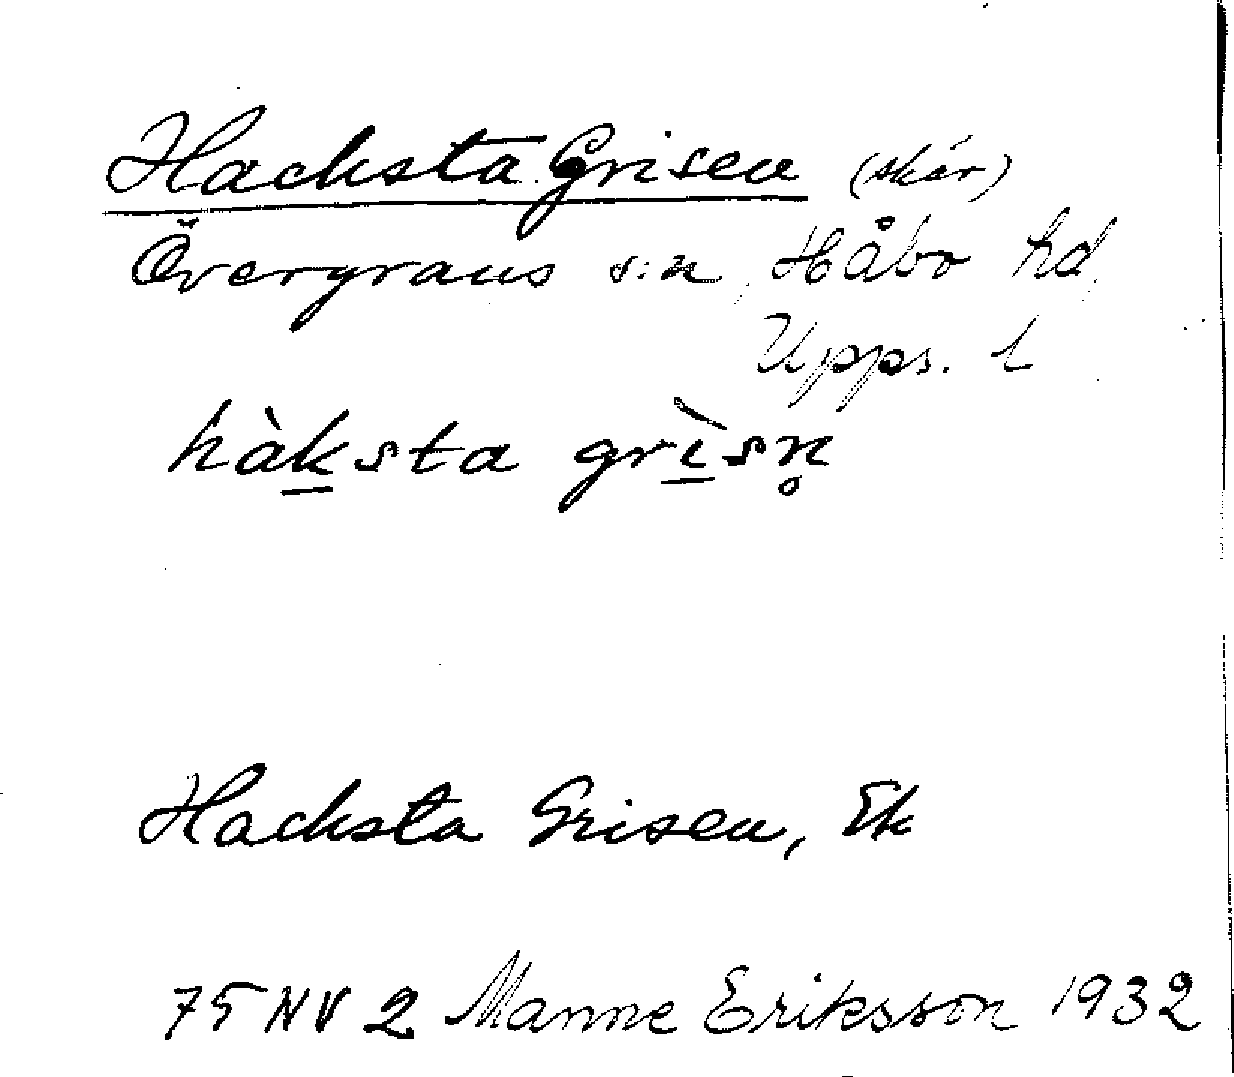 Hacksta Grisen (skär)
Övergrans s:n, Håbo hd,
Upps. l
hàk̲sta grì̲sn̥
Hacksta Grisen, Ek
75 NV 2 Manne Eriksson 1932